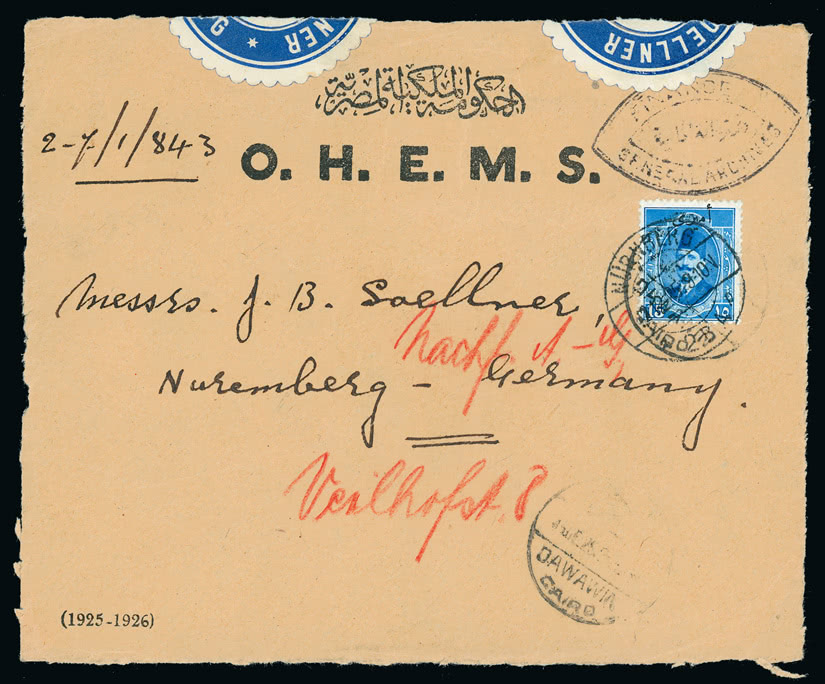 G * NER
OELLNER
الحكومة الملكية المصرية
2-7/1/843
O. H. E. M. S.
GENERAL ARCHIVES
NÜRNBERG
CAIRO
Messrs. J. B. Soellner,
Nachf. A-G
Nuremberg - Germany.
Veilhofst. 8
DAWAWIN
CAIRO
(1925-1926)